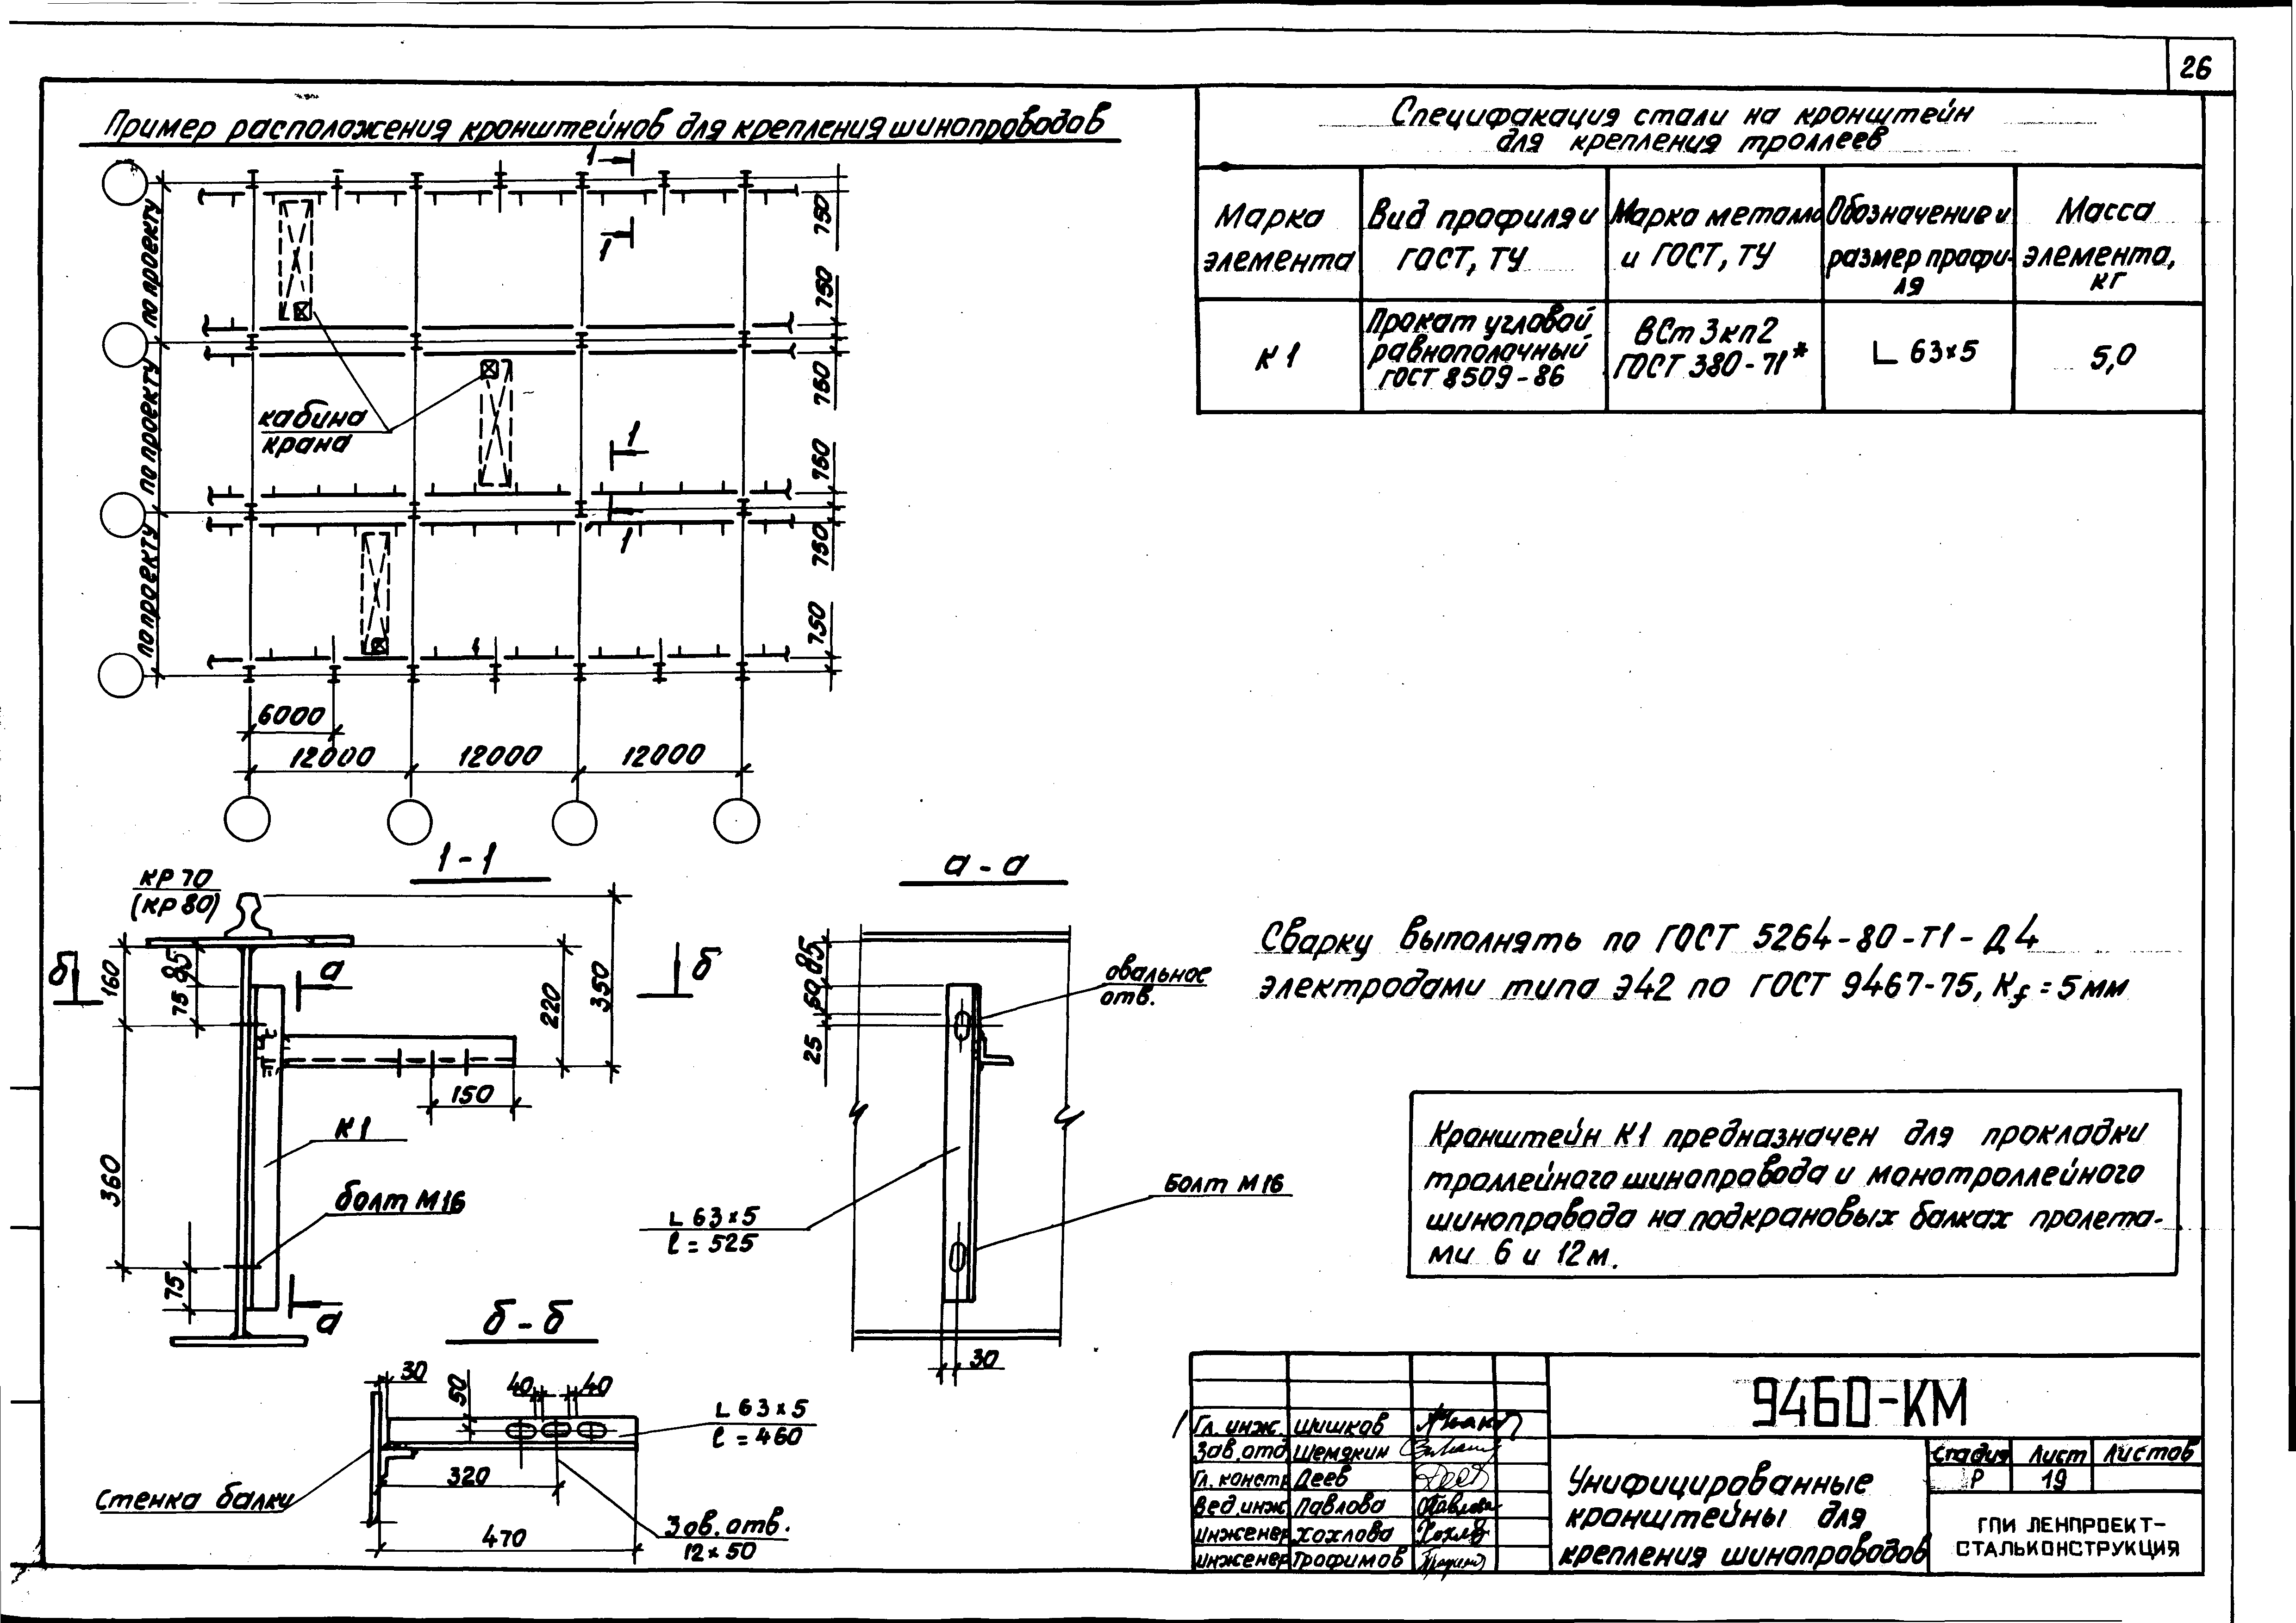 26
Пример расположения кронштейнов для крепления шинопроводов
Спецификация стали на кронштейн
для крепления троллеев
Марка
элемента
Вид профиля и
ГОСТ, ТУ
Марка металла
и ГОСТ, ТУ
Обозначение и
размер профи-
ля
Масса
элемента,
кг
К 1
Прокат угловой
равнополочный
ГОСТ 8509-86
ВСт 3кп2
ГОСТ 380-71*
∟ 63×5
5,0
1
1
1
1
по проекту
по проекту
по проекту
750
750
750
750
750
750
кабина
крана
6000
12000
12000
12000
1-1
КР 70
(КР 80)
б
б
160
85
75
а
220
350
150
К 1
360
болт М16
75
а
а-а
85
50
25
овальное
отв.
∟ 63×5
ℓ = 525
Болт М16
30
б-б
30
50
40
40
∟ 63×5
ℓ = 460
320
Стенка балки
470
3 ов. отв.
12×50
Сварку выполнять по ГОСТ 5264-80-Т1-Д4
электродами типа Э42 по ГОСТ 9467-75, Kf = 5 мм
Кронштейн К1 предназначен для прокладки
троллейного шинопровода и монотроллейного
шинопровода на подкрановых балках пролета-
ми 6 и 12 м.
Гл. инж. Шишков
Зав. отд. Шемякин
Гл. констр Деев
Вед. инж. Павлова
инженер Хохлова
инженер Трофимов
9460-КМ
Унифицированные
кронштейны для
крепления шинопроводов
Стадия Лист Листов
Р 19
ГПИ ЛЕНПРОЕКТ-
СТАЛЬКОНСТРУКЦИЯ